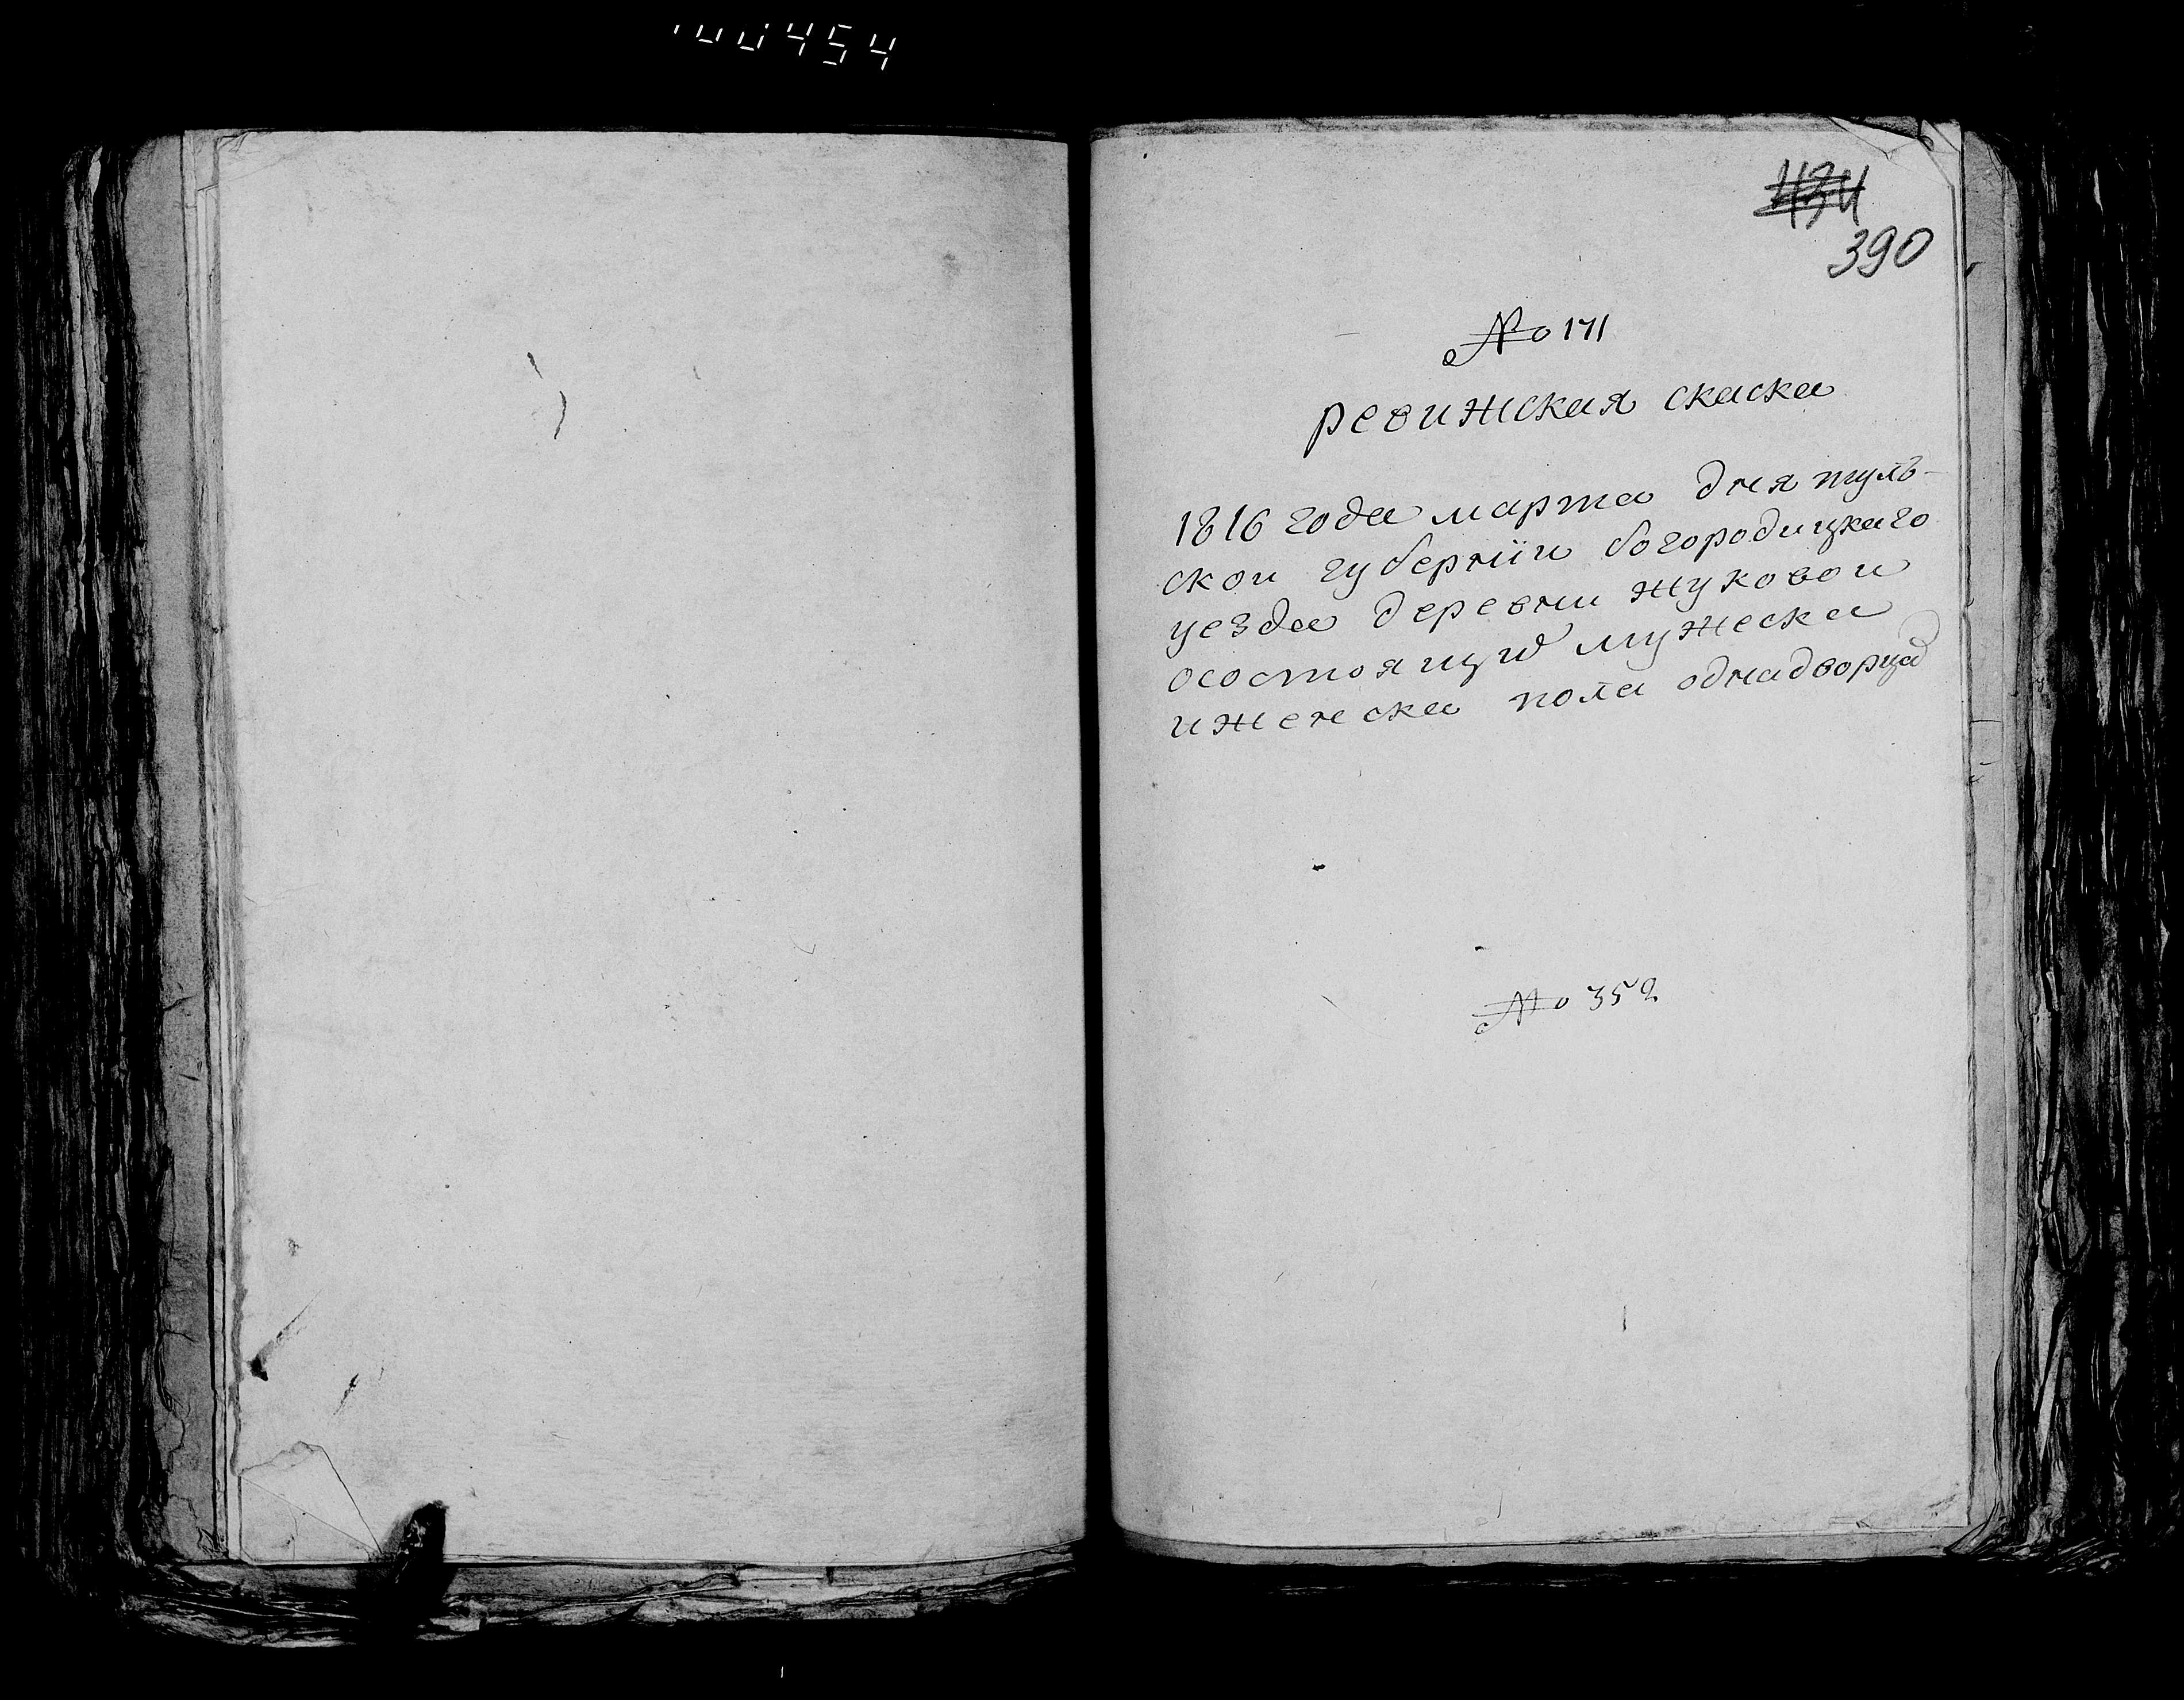 454
434
390
№ 171
ревижская скаска
1816 года марта дня туль-
ской губернїи богородицкаго
уезда деревни жуковой
осостоящиѡ мужеска
иженска пола однадворцад
№ 352